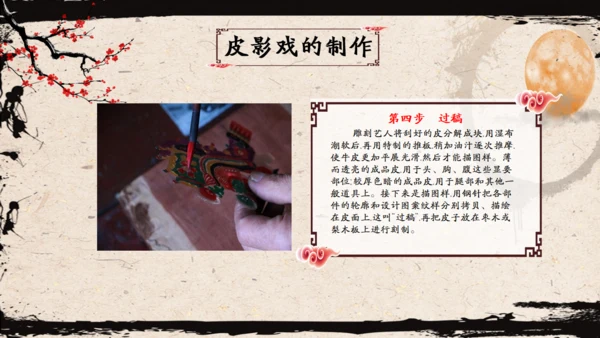 皮影戏的制作
第四步 过稿
雕刻艺人将刮好的皮分解成块,用湿布
潮软后,再用特制的推板,稍加油汁逐次推摩,
使牛皮更加平展光滑,然后才能描图样。薄
而透亮的成品皮,用于头、胸、腹这些显要
部位;较厚色暗的成品皮,用于腿部和其他一
般道具上。接下来是描图样,用钢针把各部
件的轮廓和设计图案纹样分别拷贝、描绘
在皮面上,这叫“过稿”,再把皮子放在枣木或
梨木板上进行刻制。